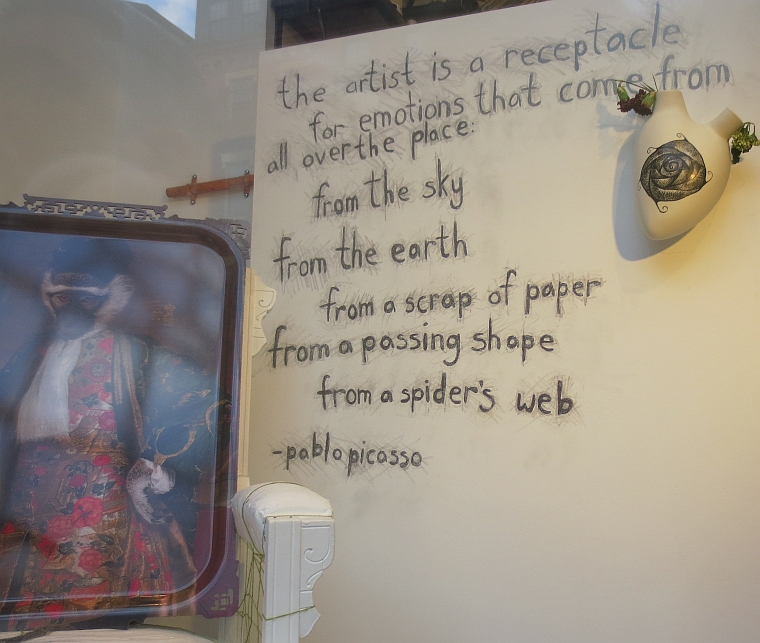 the artist is a receptacle
for emotions that come from
all over the place:
from the sky
from the earth
from a scrap of paper
from a passing shape
from a spider's web
-pablo picasso